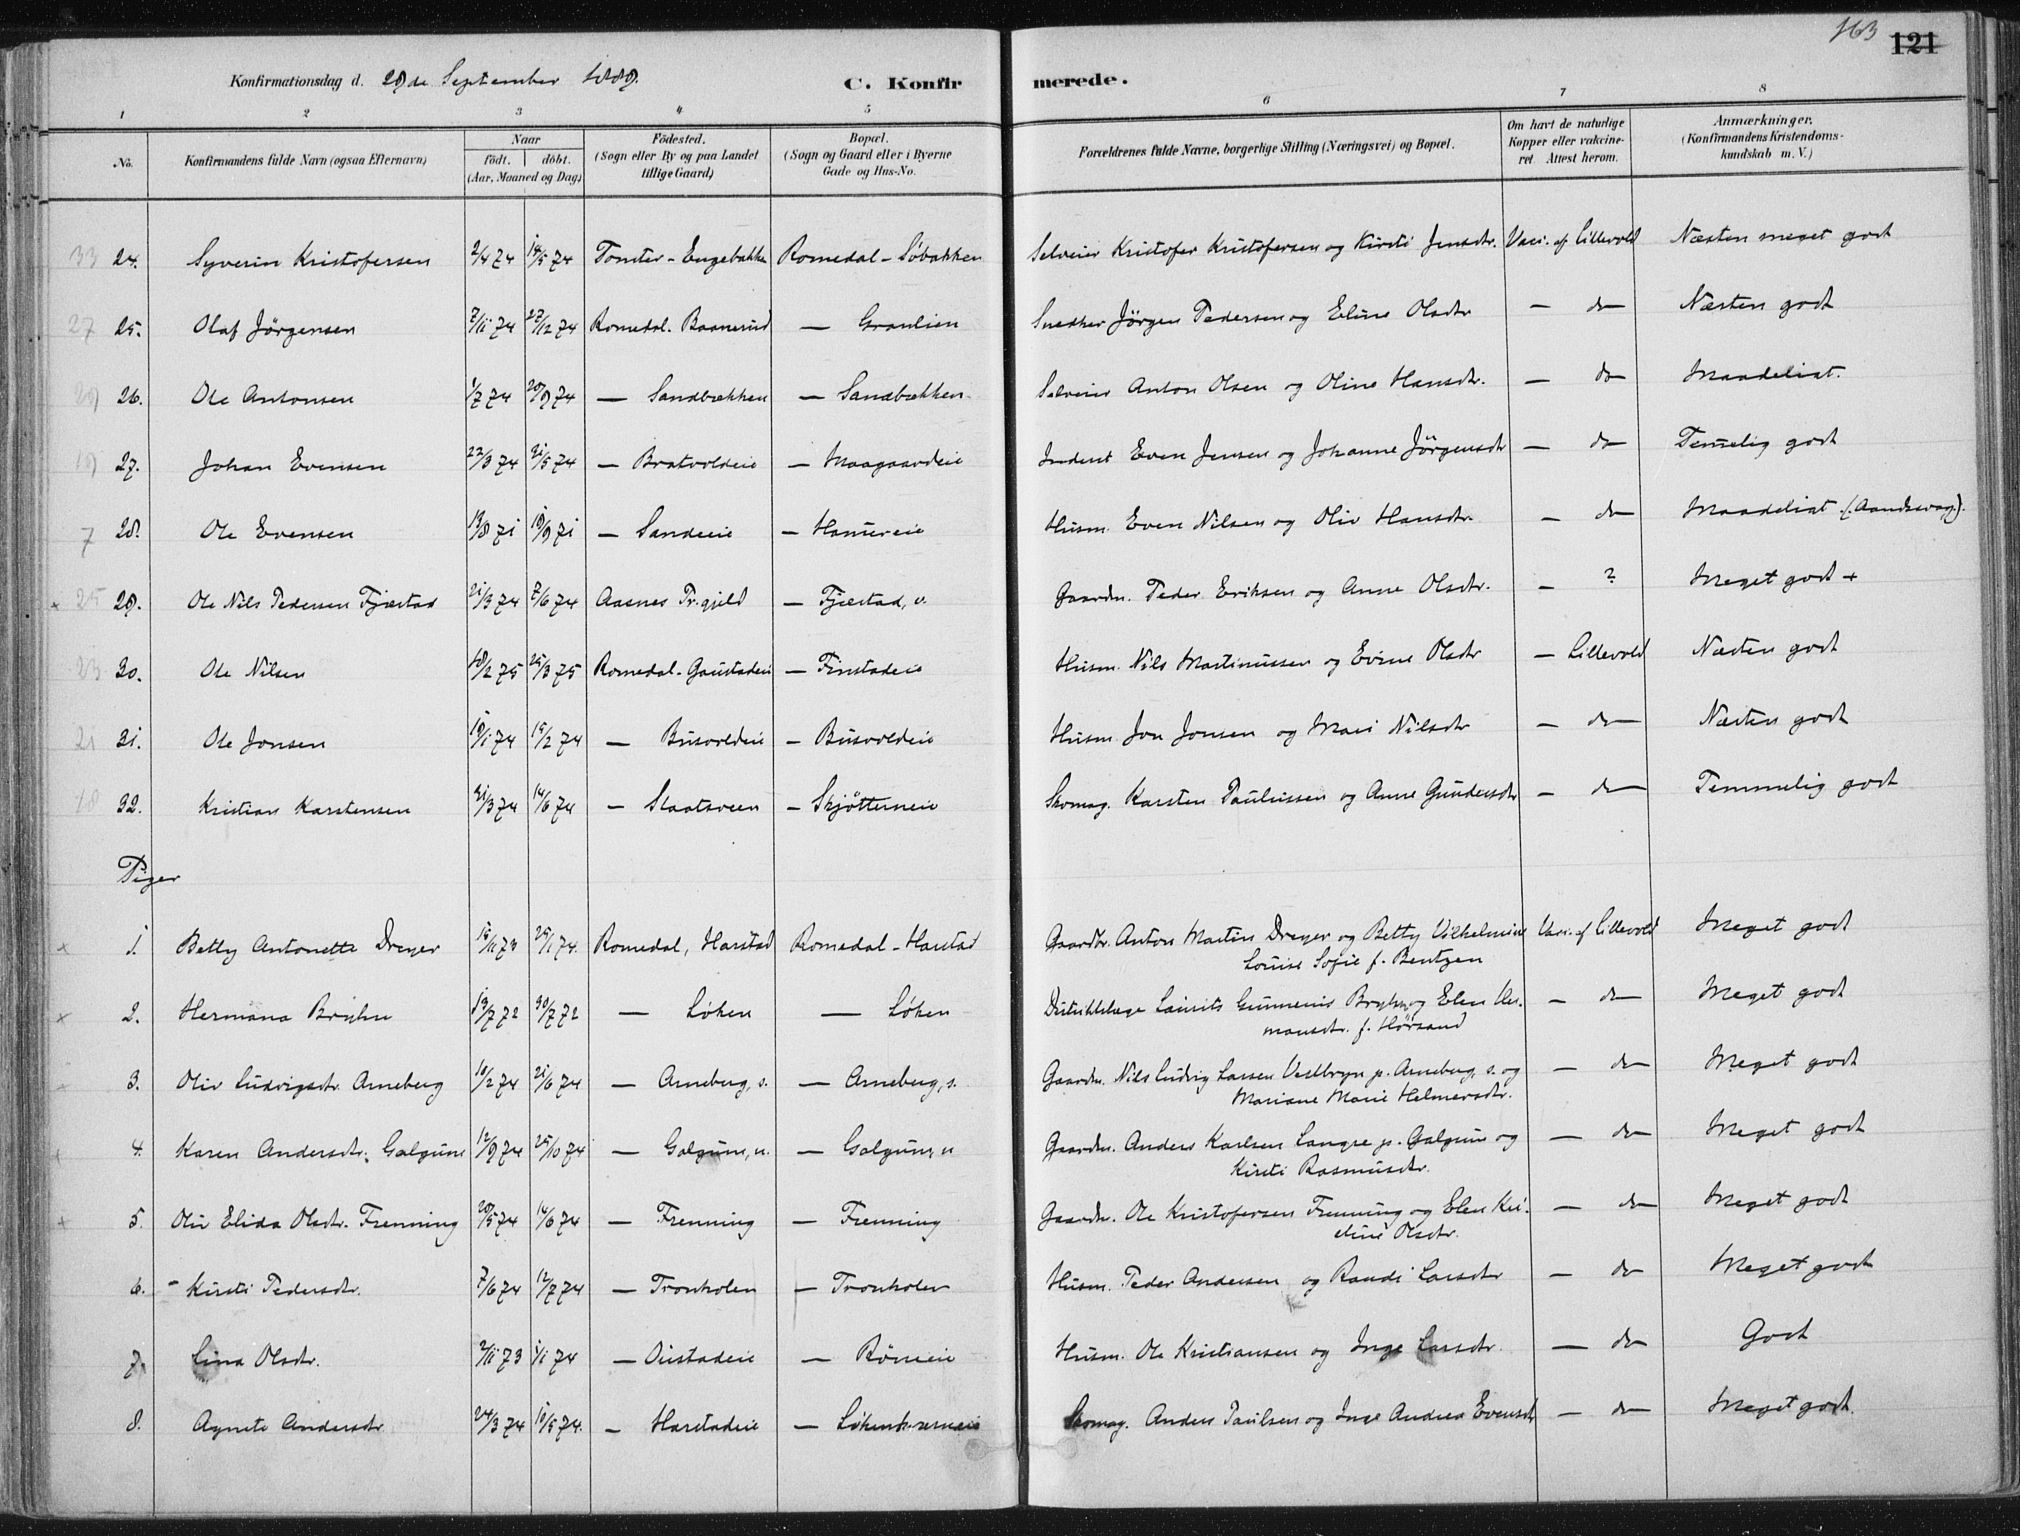 163 121
Konfirmationsdag d. 29de September 1889. C. Konfirmerede.
1 2 3 4 5 6 7 8
No. Konfirmandens fulde Navn (ogsaa Efternavn) Naar født. døbt. (Aar, Maaned og Dag) Fødested. (Sogn eller By og paa Landet tillige Gaard) Bopæl. (Sogn og Gaard eller i Byerne Gade og Hus-No. Forældrenes fulde Navne, borgerlige Stilling (Næringsvei) og Bopæl. Om havt de naturlige Kopper eller vakcineret. Attest herom. Anmærkninger. (Konfirmandens Kristendomskundskab m. V.)
33 24. Syverin Kristofersen 2/4 74 14/5 74 Tomter - Engebakken Romedal - Søbakken Selveier Kristofer Kristofersen og Kirsti Jensdtr. Vacc. af Lillevold Næsten meget godt
27 25. Olaf Jörgensen 7/11 74 27/12 74 Romedal. Baanerud — Granlien Snedker Jörgen Pedersen og Eline Olsdtr — do Næsten godt
29 26. Ole Antonsen 1/7 74 20/9 74 — Sandbækken — Sandbækken Selveier Anton Olsen og Oline Hansdtr. — do Maadeligt.
19 27. Johan Evensen 22/3 74 21/5 74 — Bratvoldeie — Maagaardeie Inderst Even Jensen og Johanne Jörgensdtr — do Temelig godt
7 28. Ole Evensen 13/8 71 10/9 71 — Sandeie — Homereie Husm. Even Nilsen og Oliv Hansdtr. — do Maadeligt (Aandssvag).
25 29. Ole Nils Pedersen Fjæstad 21/3 74 7/6 74 Aasnes Pr.gjeld — Fjæstad, v. Gaardm. Peder Eriksen og Anne Olsdtr. — ? Meget godt +
23 30. Ole Nilsen 18/2 75 25/3 75 Romedal - Gaustadeie — Finstadeie Husm. Nils Martinussen og Evine Olsdtr — Lillevold Næsten godt
21 31. Ole Jonsen 19/1 74 15/2 74 — Busvoldeie — Busvoldeie Husm. Jon Jonsen og Mari Nilsdtr — do Næsten godt
18 32. Kristian Karstensen 31/3 74 14/6 74 — Staatsveen — Skjötterneie Skomag. Karsten Paulussen og Anne Gundersdtr — do Temmelig godt
Piger
1. Betty Antonette Dreyer 15/11 73 25/1 74. Romedal, Harstad Romedal - Harstad Gaardbr. Anton Martin Dreyer og Betty Vilhelmine Vacc. af Lillevold Meget godt
Louise Sofie f. Bentzen
2. Hermana Bryhn 13/7 72 30/7 72 — Løken — Løken Distriktslæge Laurits Gummenis Bryhn og Elen Her- — do Meget godt
mansdtr. f. Hørsand
3. Oliv Ludvigsdtr. Arneberg 10/2 74 21/6 74 — Arneberg, s. — Arneberg, s. Gaardm. Nils Ludvig Larsen Vestbryn p. Arneberg, s. og — do Meget godt
Mariane Marie Helmersdtr.
4. Karen Andersdtr. Galgum 12/9 74 25/10 74 — Galgum, n. — Galgum, n Gaardm. Anders Karlsen Langre p. Galgum og — do Meget godt
Kirsti Rasmusdtr.
5. Oliv Elida Olsdtr. Frenning 20/5 74 14/6 74 — Frenning — Frenning Gaardm. Ole Kristofersen Frenning og Elen Kri- — do Meget godt
stine Olsdtr.
6. Kirsti Pedersdtr. 7/6 74 12/7 74 — Tronholen — Tronholen Husm. Peder Andersen og Randi Larsdtr — do Meget godt
7. Lina Olsdtr. 2/11 73 1/1 74 — Oustadeie — Röneeie Husm. Ole Kristiansen og Inge Larsdtr. — do Godt
8. Agnete Andersdtr 24/3 74 10/5 74. — Harstadeie — Løkenkværneie Skomag. Anders Paulsen og Inge Andrea Evensdtr — do Meget godt.